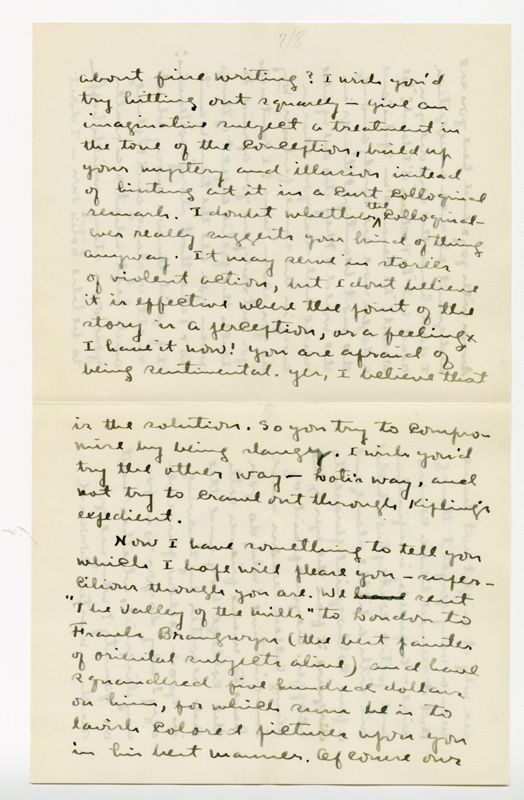 7/8
about fine writing? I wish you'd
try hitting out squarely — give an
imaginative subject a treatment in
the tone of the conception, build up
your mystery and illusion instead
of hinting at it in a curt colloquial
remark. I doubt whether the colloquial-
ism really suggests your kind of thing
anyway. It may serve in stories
of violent action, but I dont believe
it is effective where the point of the
story is a perception, or a feeling.
I have it now! you are afraid of
being sentimental. yes, I believe that
is the solution. So you try to compro-
mise by being slangy. I wish you'd
try the other way — Loti's way, and
not try to crawl out through Kipling's
expedient.
Now I have something to tell you
which I hope will please you — super-
cilious though you are. We have sent
"The Valley of the Mills" to London to
Frank Brangwyn (the best painter
of oriental subjects alive) and have
squandered five hundred dollars
on him, for which sum he is to
lavish colored pictures upon you
in his best manner. Of course our